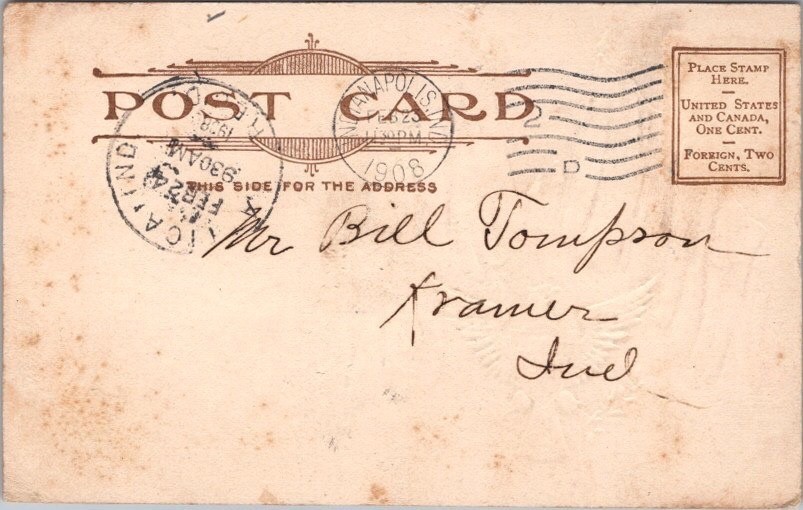 POST CARD
THIS SIDE FOR THE ADDRESS
INDIANAPOLIS, IND.
FEB 23
1908
2
D
ATTICA, IND
FEB 24
930 AM
1908
PLACE STAMP
HERE.
UNITED STATES
AND CANADA,
ONE CENT.
FOREIGN, TWO
CENTS.
Mr Bill Tompson
Kramer
Ind